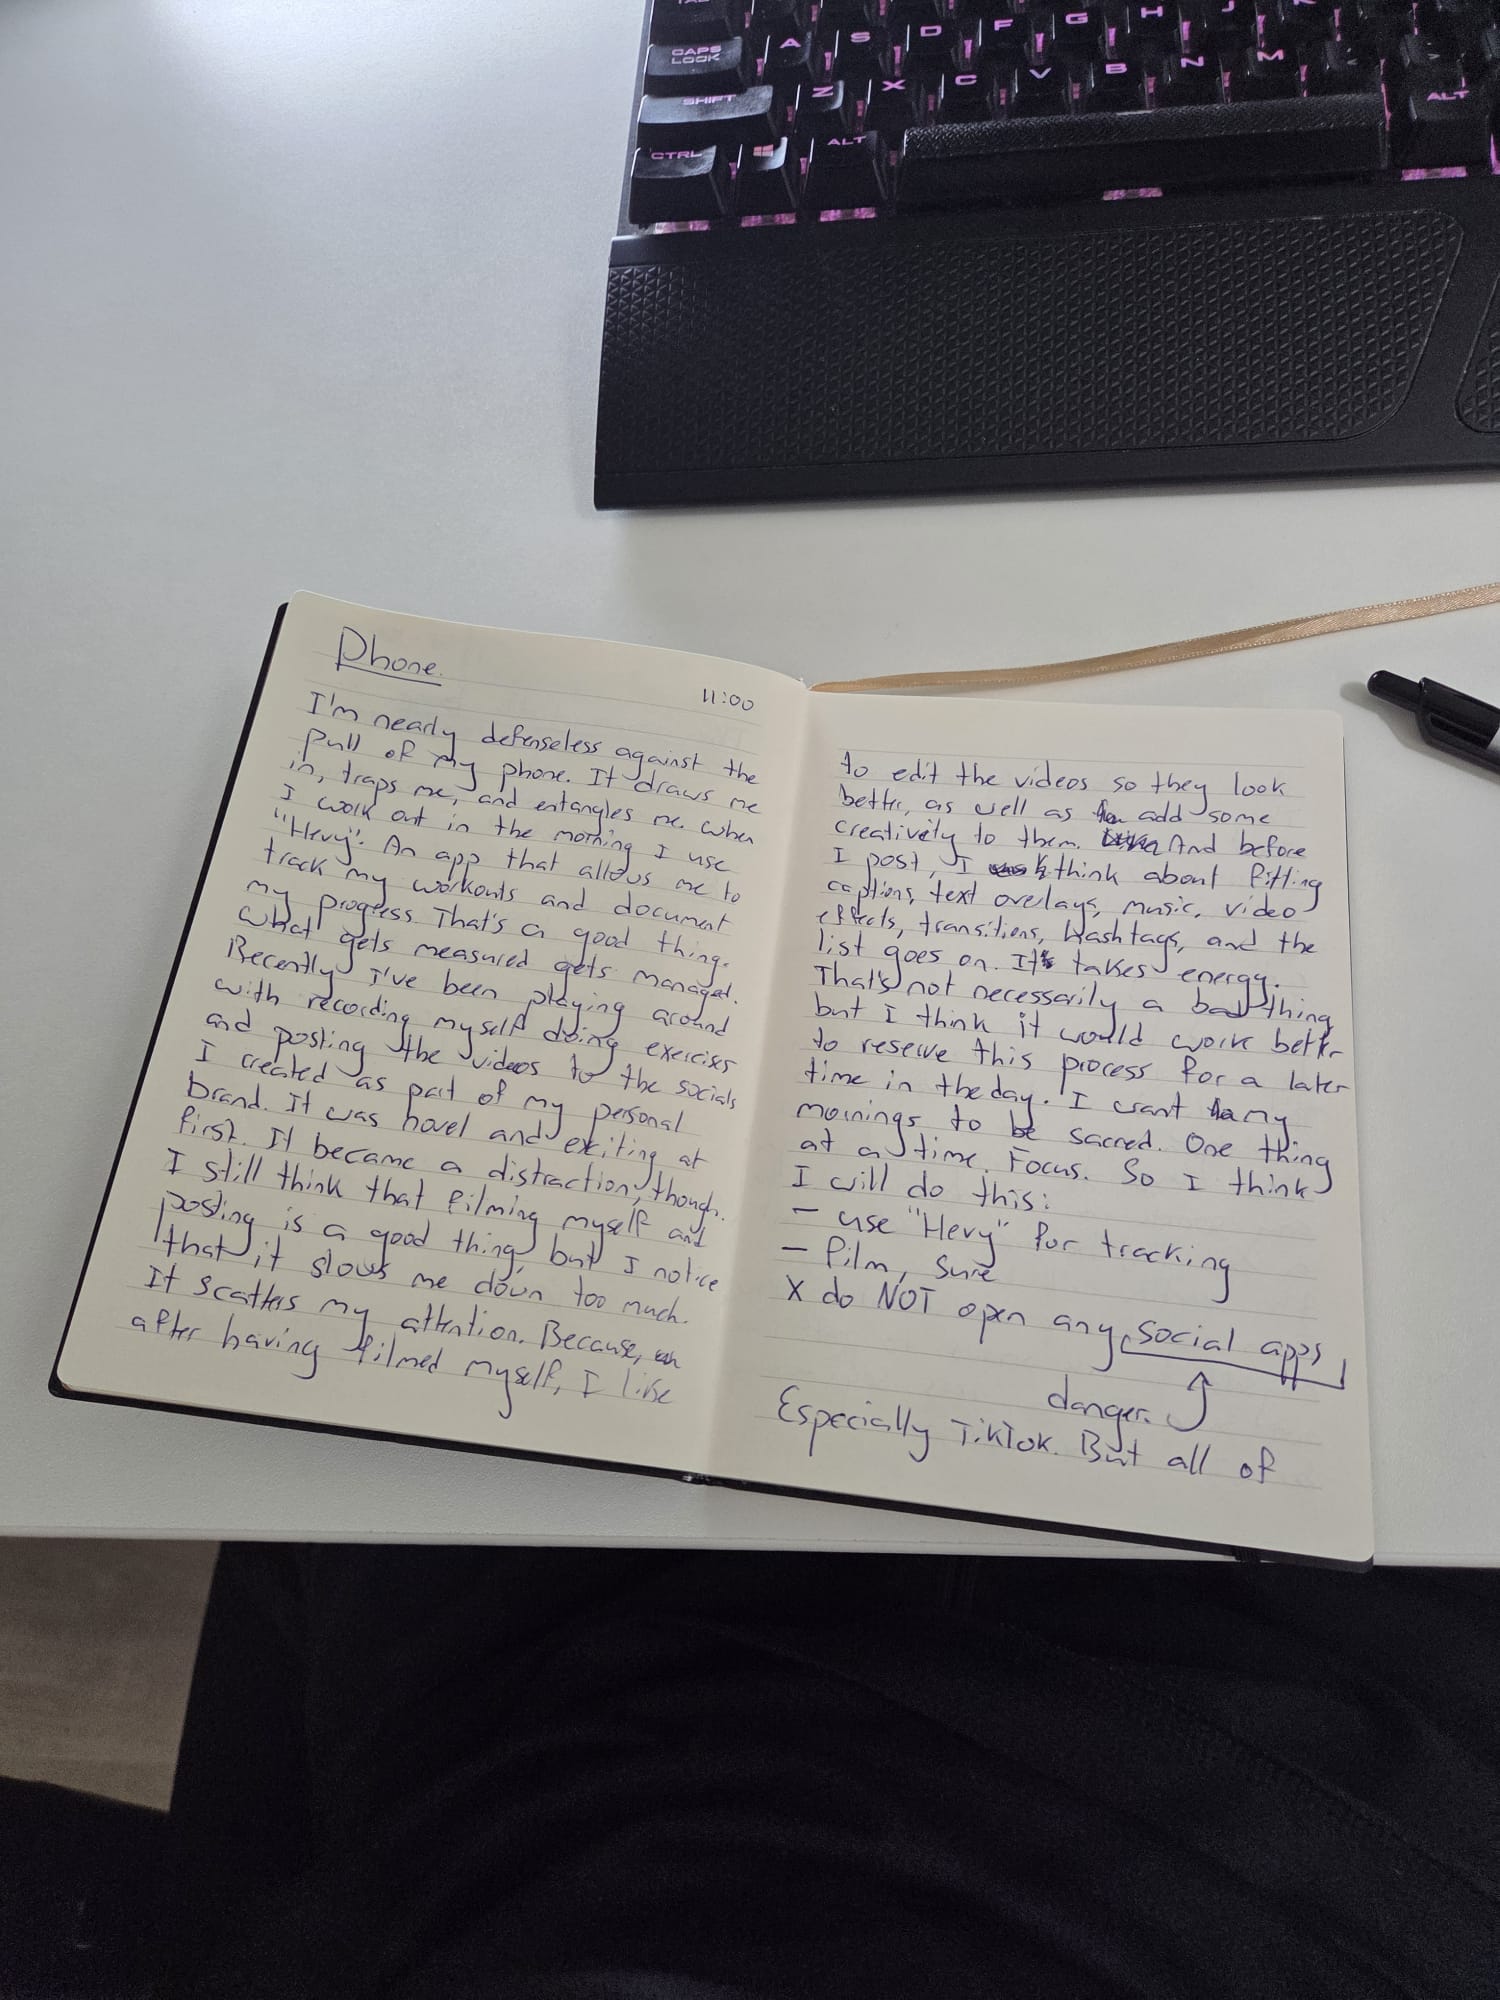 A S D F G H J K
CAPS LOCK
Z X C V B N M < >
SHIFT
ALT
CTRL
ALT
Phone.
11:00
I'm nearly defenseless against the
pull of my phone. It draws me
in, traps me, and entangles me. When
I work out in the morning I use
"Hevy". An app that allows me to
track my workouts and document
my progress. That's a good thing.
What gets measured gets managed.
Recently I've been playing around
with recording myself doing exercises
and posting the videos to the socials
I created as part of my personal
brand. It was novel and exciting at
first. It became a distraction, though.
I still think that filming myself and
posting is a good thing, but I notice
that it slows me down too much.
It scatters my attention. Because,
after having filmed myself, I like
to edit the videos so they look
better, as well as add some
creativity to them. And before
I post, I think about fitting
captions, text overlays, music, video
effects, transitions, hashtags, and the
list goes on. It takes energy.
That's not necessarily a bad thing
but I think it would work better
to reserve this process for a later
time in the day. I want my
mornings to be sacred. One thing
at a time. Focus. So I think
I will do this:
- use "Hevy" for tracking
- film, sure
X do NOT open any social apps
danger.
Especially TikTok. But all of